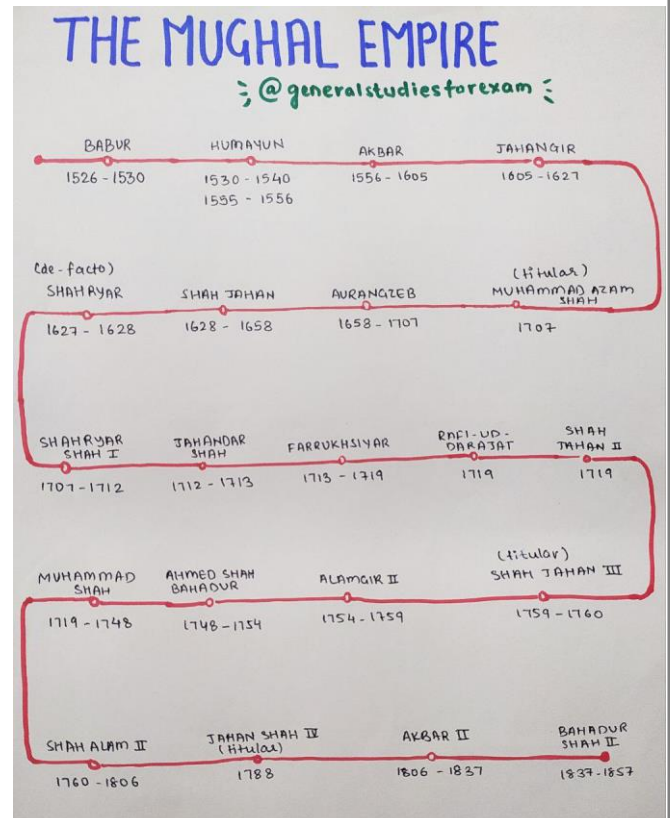 THE MUGHAL EMPIRE
@generalstudiesforexam
BABUR
1526 - 1530
HUMAYUN
1530 - 1540
1555 - 1556
AKBAR
1556 - 1605
JAHANGIR
1605 - 1627
(de-facto)
SHAHRYAR
1627 - 1628
SHAH JAHAN
1628 - 1658
AURANGZEB
1658 - 1707
(titular)
MUHAMMAD AZAM
SHAH
1707
SHAHRYAR
SHAH I
1707-1712
JAHANDAR
SHAH
1712 - 1713
FARRUKHSIYAR
1713 - 1719
RAFI-UD-
DARAJAT
1719
SHAH
JAHAN II
1719
MUHAMMAD
SHAH
1719 - 1748
AHMED SHAH
BAHADUR
1748-1754
ALAMGIR II
1754 - 1759
(titular)
SHAH JAHAN III
1759 - 1760
SHAH ALAM II
1760 - 1806
JAHAN SHAH IV
(titular)
1788
AKBAR II
1806 - 1837
BAHADUR
SHAH II
1837-1857